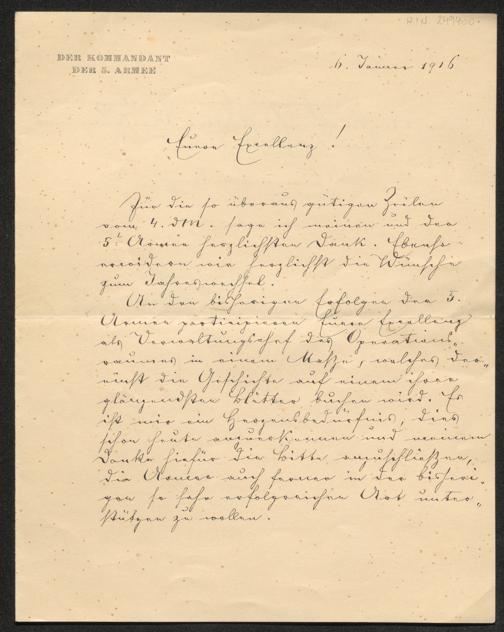 H.I.N. 249400
DER KOMMANDANT
DER 5. ARMEE
6. Jänner 1916
Euere Exzellenz!
Für die so überaus gütigen Zeilen
vom 4. d M. sage ich meinen und der
5t. Armee herzlichsten Dank. Ebenso
erwidern wir herzlichst die Wünsche
zum Jahreswechsel.
An den bisherigen Erfolgen der 5.
Armee partizipieren Euere Exzellenz
als Verwaltungschef des Operations-
raumes in einem Maße, welches der-
einst die Geschichte auf einem ihrer
glänzendsten Blätter buchen wird. Es
ist mir ein Herzensbedürfnis, dies
schon heute anzuerkennen und meinem
Danke hiefür die Bitte anzuschließen,
die Armee auch ferner in der bisheri-
gen so sehr erfolgreichen Art unter-
stützen zu wollen.